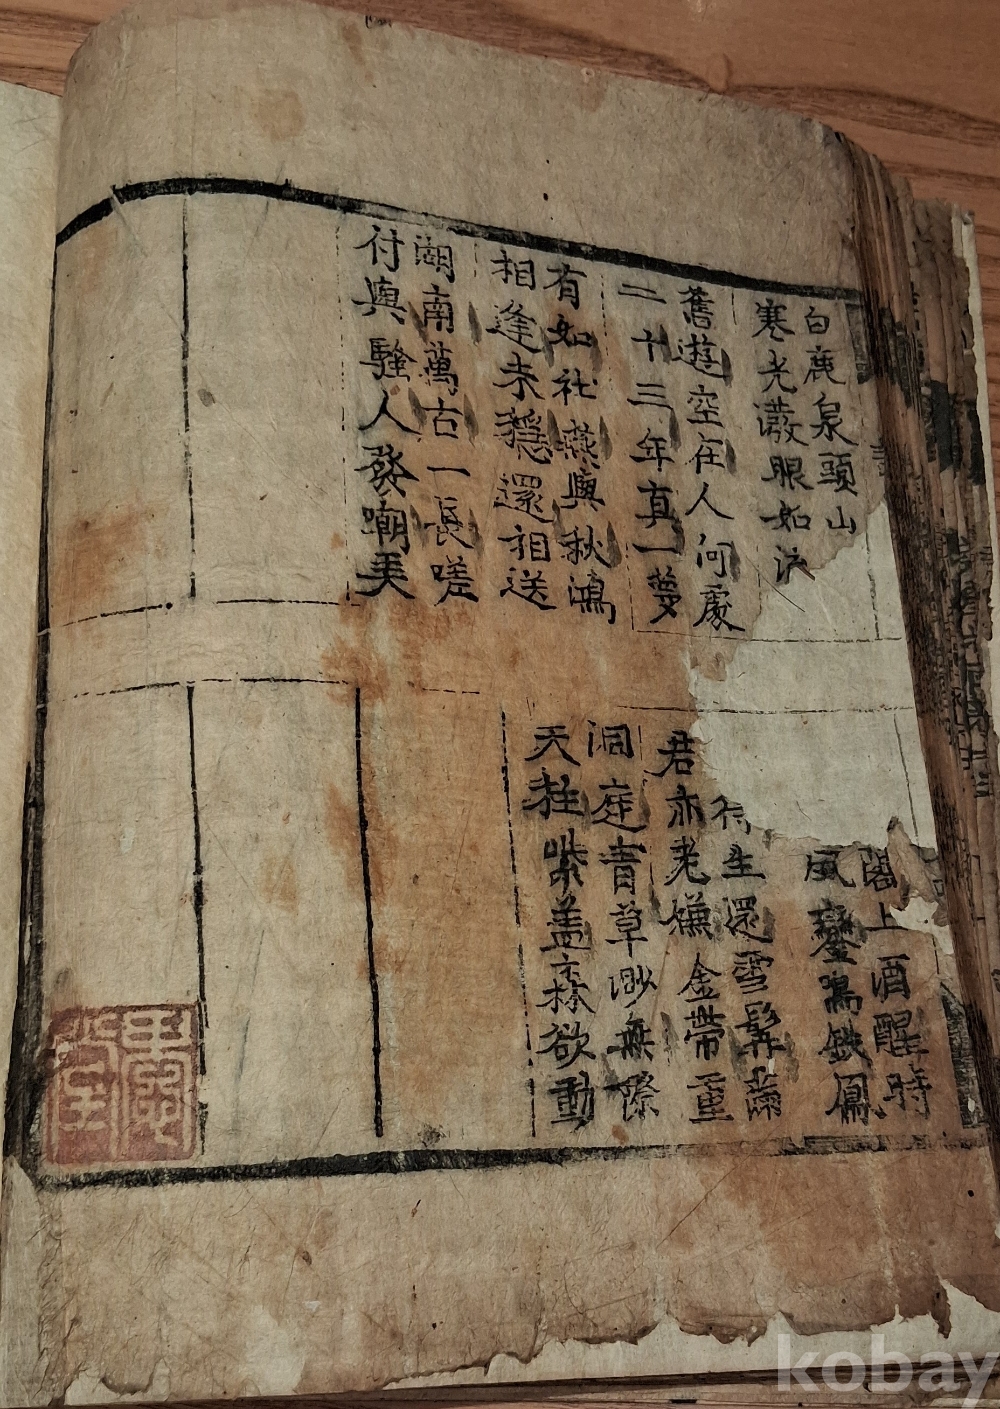 白鹿泉頭山
寒光潑眼如流
閣上酒醒時
風鑾鳴鐵鳳
舊遊空在人何處
二十三年真一夢
得生還雪髯滿
君亦老嫌金帶重
有如社燕與秋鴻
相逢未穩還相送
洞庭青草渺無際
天柱紫盖森欲動
湖南萬古一長嗟
付與騷人發嘲弄
kobay